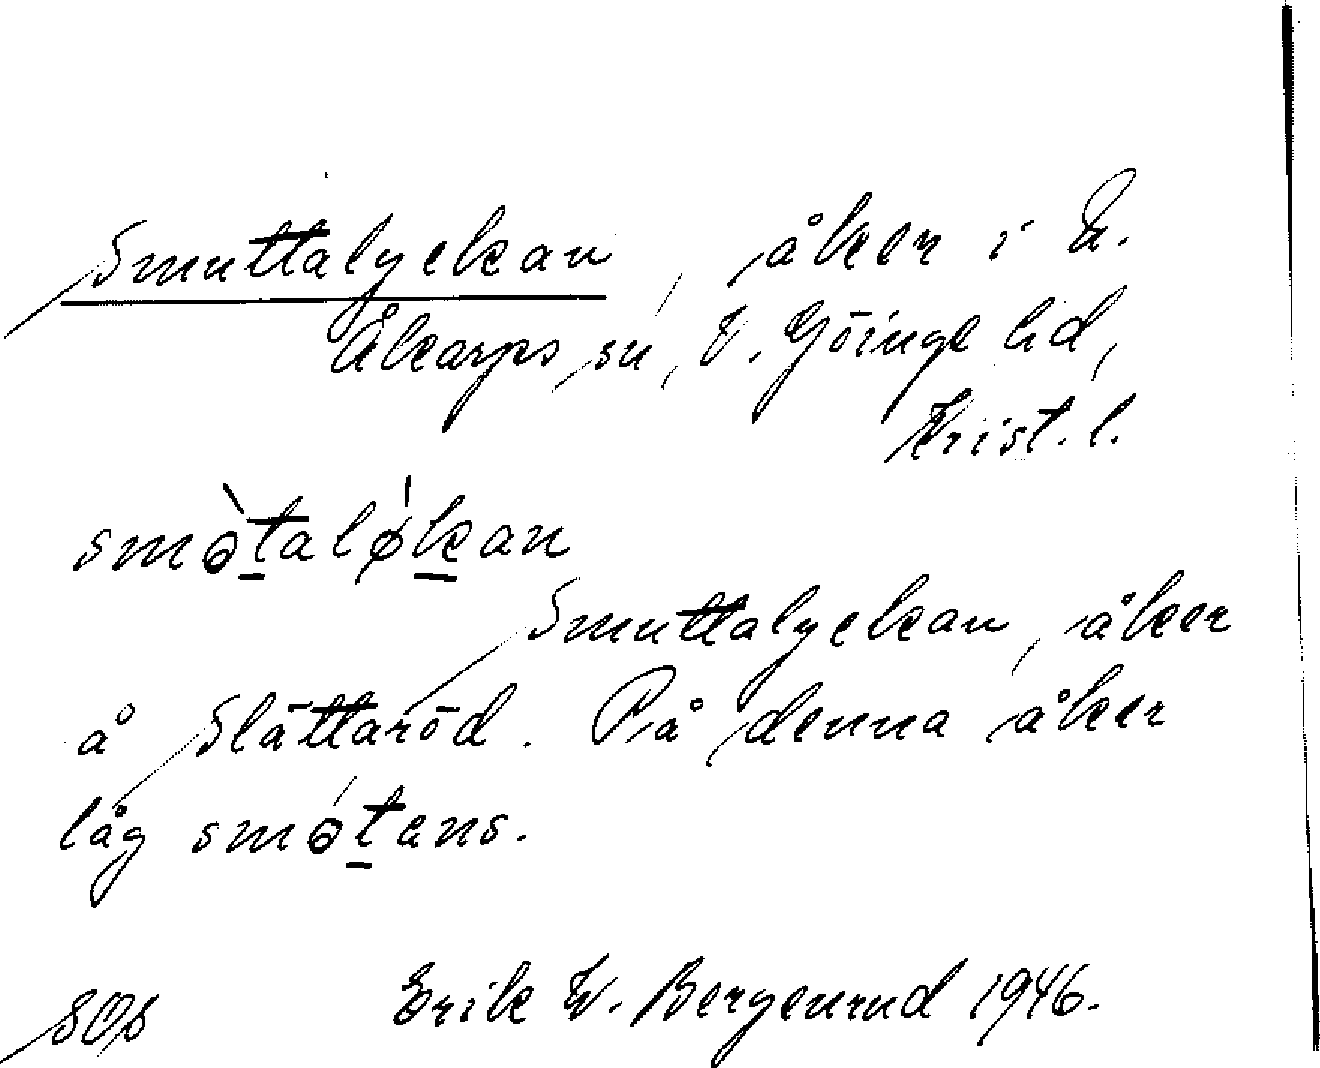 Smuttalyckan, åker i N.
Åkarps sn, V. Göinge hd,
Krist. l.
smòtaløkan
Smuttalyckan, åker
å Slättaröd. På denna åker
låg smótans.
SOS Erik W. Bergenrud 1946.